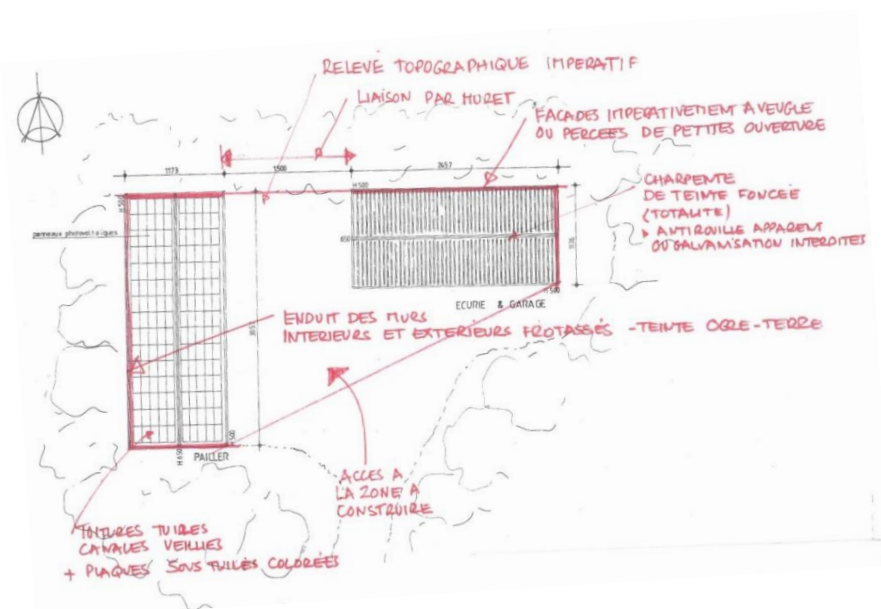 RELEVÉ TOPOGRAPHIQUE IMPERATIF
LIAISON PAR MURET
FAÇADES IMPERATIVEMENT AVEUGLE
OU PERCÉES DE PETITES OUVERTURE
1173
1500
2457
H 500
H 500
CHARPENTE
DE TEINTE FONCÉE
(TOTALITÉ)
ANTIROUILLE APPARENT
OU GALVANISATION INTERDITES
panneaux photovoltaïques
650
1176
H 500
ECURIE & GARAGE
ENDUIT DES MURS
INTERIEURS ET EXTERIEURS FROTASSÉS - TEINTE OCRE-TERRE
H 500
H 650
PAILLER
ACCES A
LA ZONE A
CONSTRUIRE
TOITURES TUILES
CANALES VEILLIES
+ PLAQUES SOUS TUILES COLORÉES